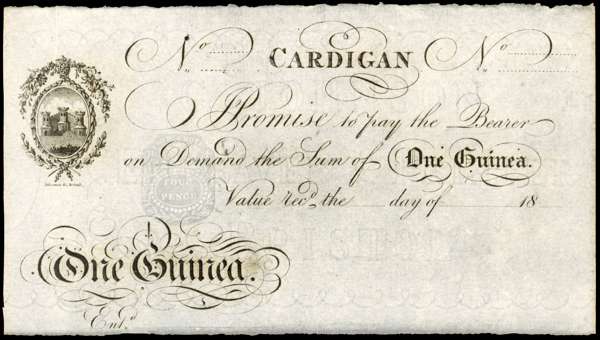 No CARDIGAN No
I Promise to pay the Bearer
on Demand the Sum of One Guinea.
Value Recd. the day of 18
FOUR
PENCE
One Guinea.
Entd.